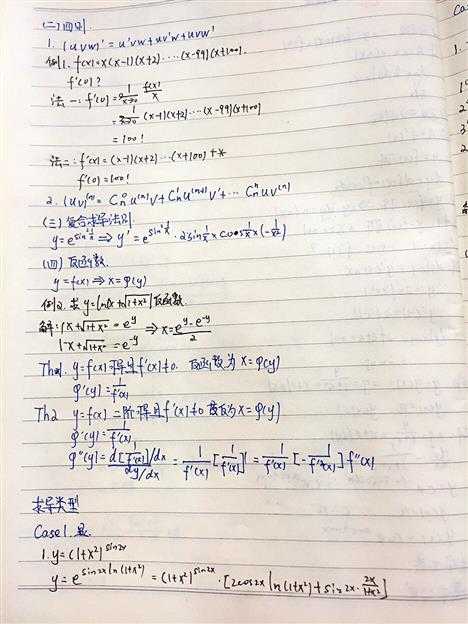 (二)四则
1. (uvw)' = u'vw + uv'w + uvw'
例1. f(x) = x(x-1)(x+2)⋯(x-99)(x+100).
f'(0)?
法一: f'(0) = lim x→0 f(x)/x
= lim x→0 (x-1)(x+2)⋯(x-99)(x+100)
= 100!
法二: f'(x) = (x-1)(x+2)⋯(x+100) + x
f'(0) = 100!
2. (uv)^(n) = Cn^0 u^(n) v + Cn^1 u^(n-1) v' + ⋯ Cn^n u v^(n)
(三)复合求导法则
y = e^(sin² 1/x) ⇒ y' = e^(sin² 1/x) · 2sin 1/x × cos 1/x × (-1/x²)
(四)反函数.
y = f(x) ⇒ x = φ(y)
例2. 求 y = ln(x + √(1+x²)) 反函数.
解: { x + √(1+x²) = e^y ⇒ x = (e^y - e^-y)/2
-x + √(1+x²) = e^-y
Th1. y = f(x) 可导且 f'(x) ≠ 0. 反函数为 x = φ(y)
φ'(y) = 1/f'(x)
Th2 y = f(x) 二阶可导且 f'(x) ≠ 0 反函为 x = φ(y)
φ'(y) = 1/f'(x).
φ''(y) = d[1/f'(x)]/dx / dy/dx = 1/f'(x) [1/f'(x)]' = 1/f'(x) [-1/f'²(x)] · f''(x)
求导类型
Case1. 显.
1. y = (1+x²)^sin2x
y = e^(sin2x ln(1+x²)) = (1+x²)^sin2x · [2cos2x ln(1+x²) + sin2x · 2x/(1+x²)]